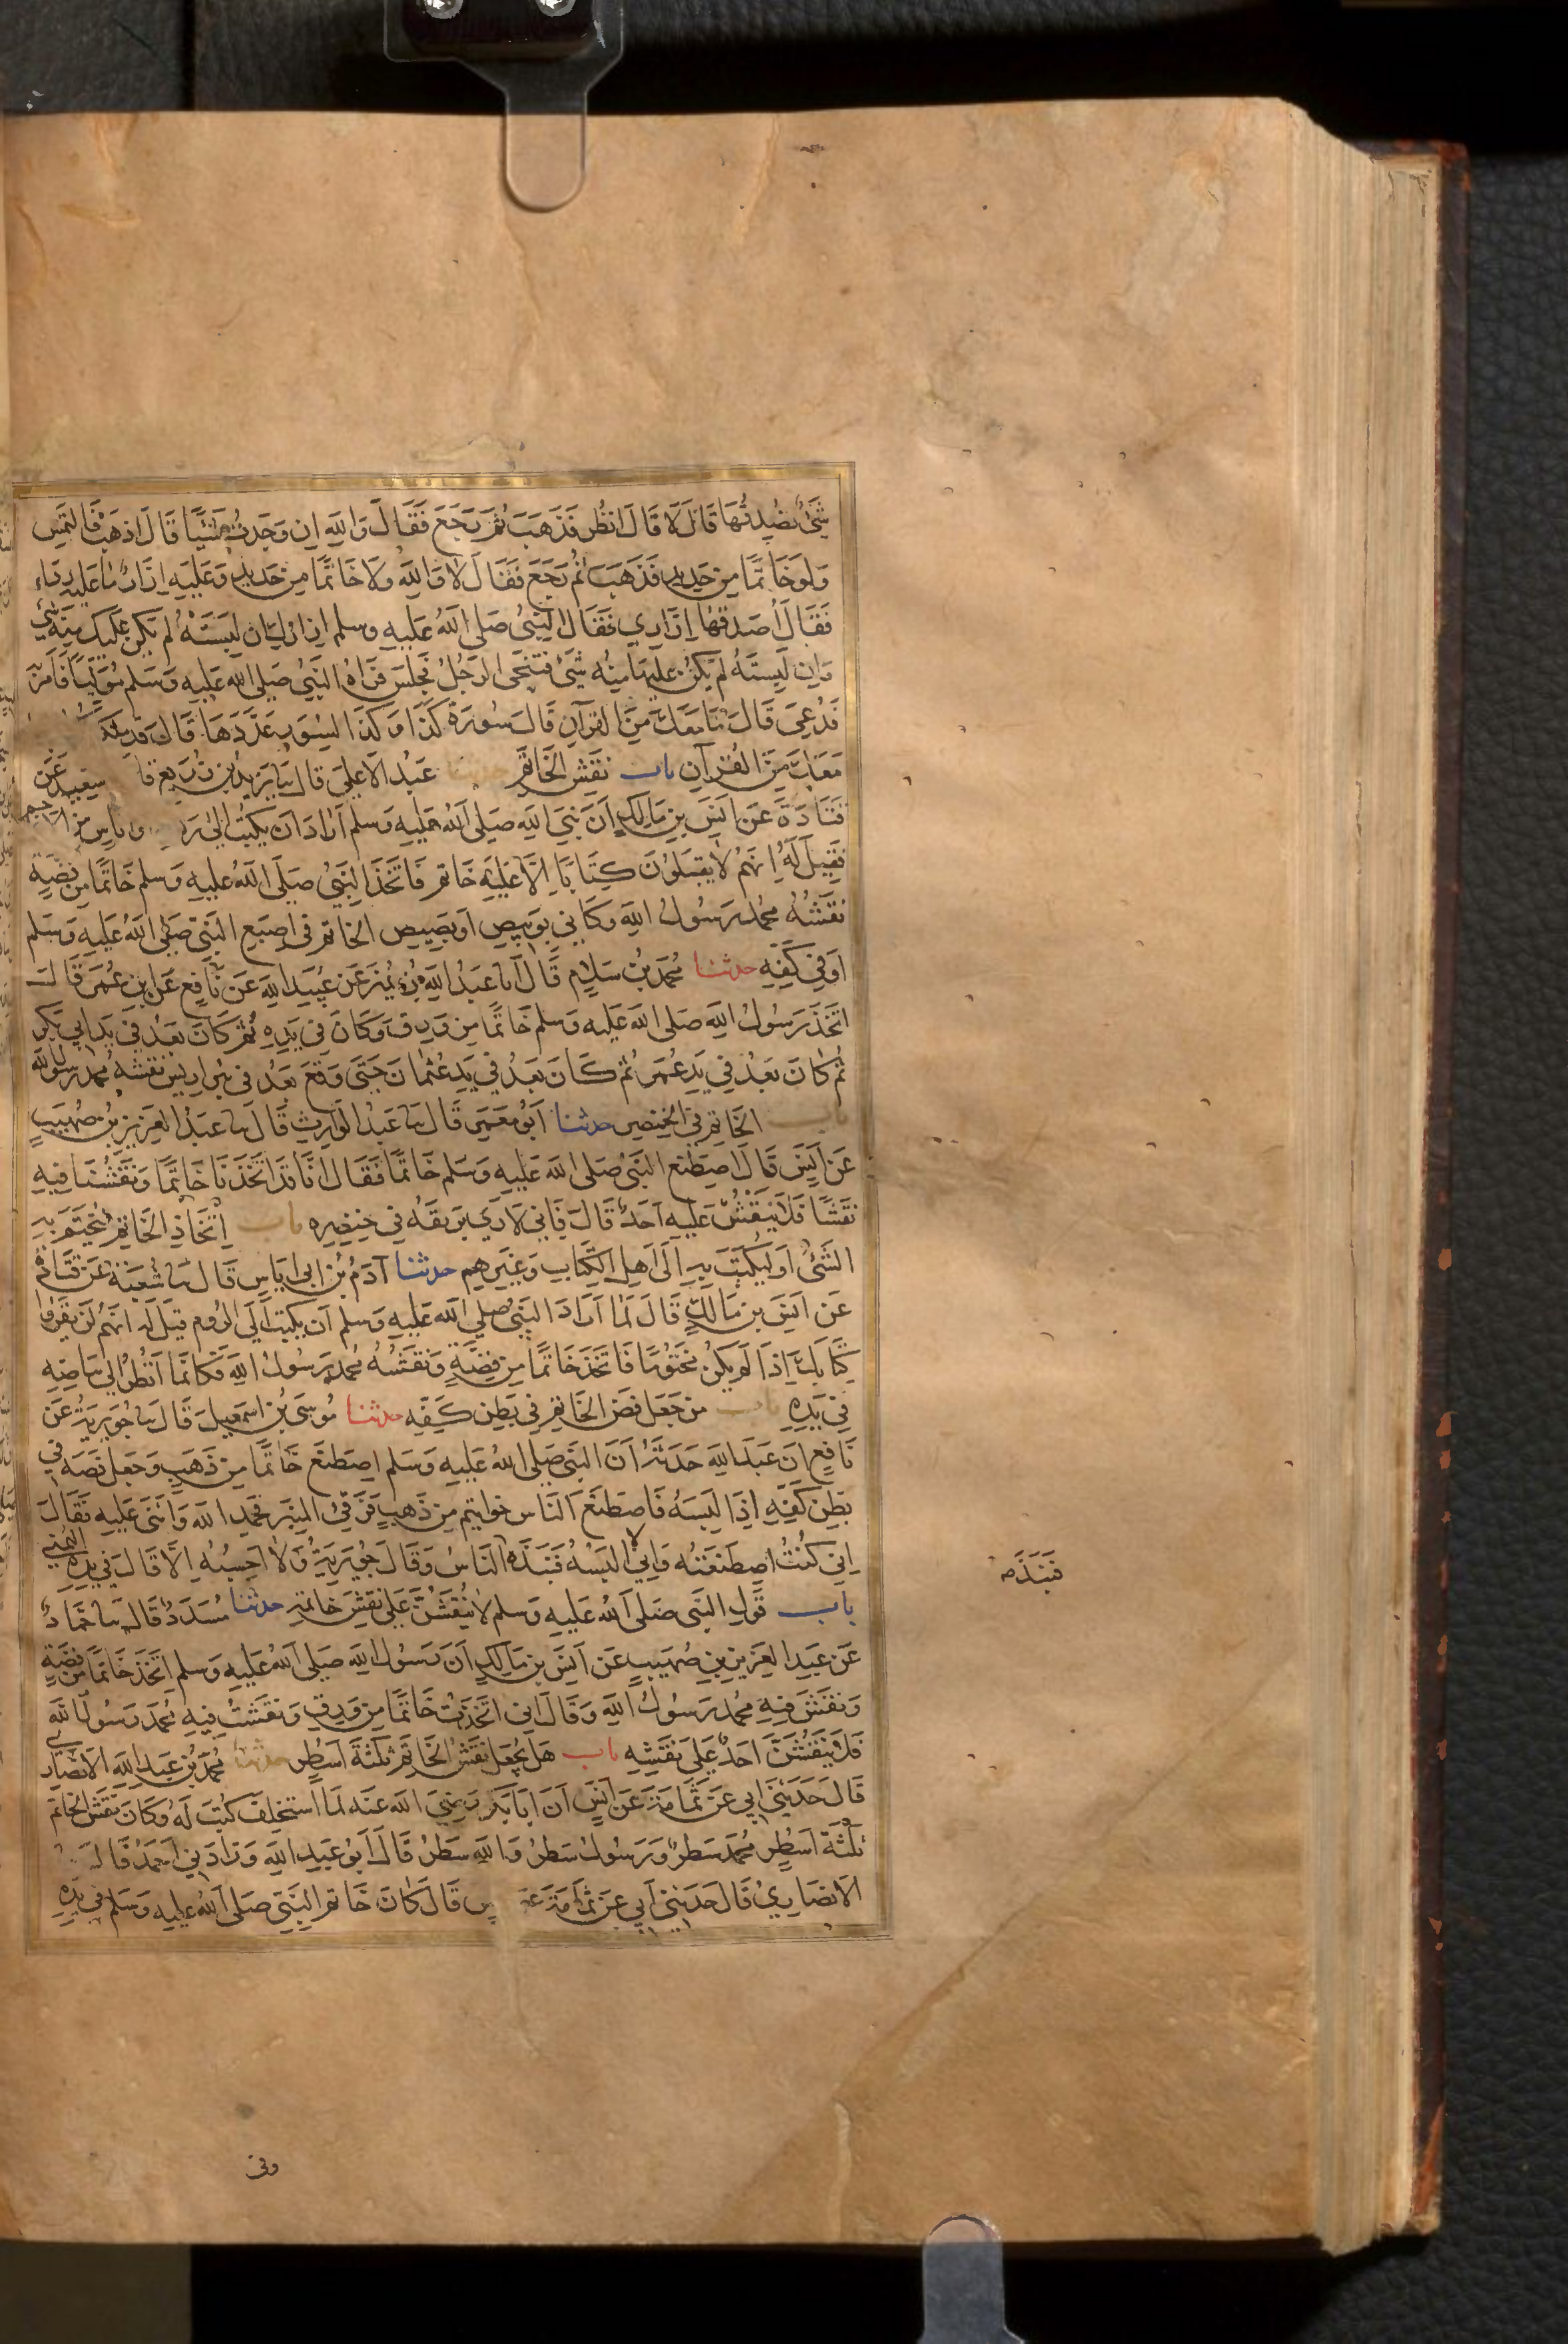 شَيْءٌ تُصْدِقُهَا قَالَ لَا قَالَ انْظُر فَذَهَبَ ثُمَّ رَجَعَ فَقَالَ وَاللهِ اِن وَجَدتُ شَيْئًا قَالَ اذهَبْ فَالتَمِس
وَلَو خَاتَمًا مِن حَدِيدٍ فَذَهَبَ ثُمَّ رَجَعَ فَقَالَ لَا وَاللهِ وَلَا خَاتَمًا مِن حَدِيدٍ وَعَلَيهِ اِزَارٌ مَا عَلَيهِ رِدَاء
فَقَالَ اُصْدِقُهَا اِزَارِي فَقَالَ النَّبِيُّ صَلَى اللهُ عَلَيهِ وسلم اِزارُكَ اِن لَبِسَتْهُ لَم يَكُن عَلَيكَ مِنهُ شَيْءٌ
وَاِن لَبِسْتَهُ لَم يَكُن عَلَيهَا مِنهُ شَيْءٌ فَتَنَحَّى الرَجُلُ فَجَلَسَ فَرَاهُ النَّبِيُّ صَلى الله عَلَيهِ وَسَلم مُوَلِّيًا فَاَمَرَ بِهِ
فَدُعِيَ قَالَ مَا مَعَكَ مِنَ القُرآنِ قَالَ سُورَةُ كَذَا وَكَذَا لِسُوَرٍ عَدَّدَهَا قَالَ قَد مَلَّكْتُكَهَا
مَعَكَ مِنَ القُرآنِ باب نَقْشِ الخَاتَمِ حدثنا عَبدُ الاَعلى قَالَ ثنا يَزِيدُ بنُ زُرَيعٍ قَا سَعِيدٌ عَن
قَتَادَةَ عَن اَنَسِ بنِ مَالِكٍ اَنَّ نَبِيَّ اللهِ صَلَى اللهُ عَلَيهِ وَسلم اَرَادَ اَن يَكتُبَ اِلَى رَ اُنَاسٍ مِنَ الاَعَاجِمِ
فَقِيلَ لَهُ اِنَّهُم لَا يَقبَلُونَ كِتَابًا اِلَّا عَلَيهِ خَاتَمٌ فَاتَّخَذَ النَّبِيُّ صَلَى اللهُ عَليهِ وَسلم خَاتَمًا مِن فِضَّةٍ
نَقْشُهُ مُحمدٌ رَسُولُ اللهِ وَكَاَنِّي بِوَبِيصِ اَو بَصِيصِ الخَاتَمِ فِي اِصبَعِ النَّبِيِّ صَلى اللهُ عَلَيهِ وَسَلم
اَو فِي كَفِّهِ حدثنا مُحمَدُ بنُ سَلَامٍ قَالَ انا عَبدُ اللهِ بنُ نُمَيرٍ عَن عُبَيدِ اللهِ عَن نَافِعٍ عَن ابنِ عُمَرَ قَالَ
اتَّخَذَ رَسُولُ اللهِ صَلى الله عَلَيهِ وَسلم خَاتَمًا مِن وَرِقٍ وَكَانَ فِي يَدِهِ ثُمَّ كَانَ بَعْدُ فِي يَدِ اَبِي بَكرٍ
ثُمَّ كَانَ بَعْدُ فِي يَدِ عُمَرَ ثُمَّ كَانَ بَعدُ فِي يَدِ عُثمَانَ حَتَّى وَقَعَ بَعدُ فِي بِئرِ اَرِيسَ نَقْشُهُ مُحمد رَسُولُ الله
باب الخَاتَمِ فِي الخِنصِرِ حدثنا اَبُو مَعْمَرٍ قَالَ ثنا عَبدُ الوَارِثِ قَالَ ثنا عَبدُ العَزِيزِ بنُ صُهَيبٍ
عَن اَنَسٍ قَالَ اصطَنَعَ النَّبِيُّ صَلى الله عَلَيهِ وَسَلم خَاتَمًا فَقَالَ اِنَّا قَد اتَّخَذنَا خَاتَمًا وَنَقَشْنَا فِيهِ
نَقْشًا فَلَا يَنقُشَنَّ عَلَيهِ اَحَدٌ قَالَ فَاِنِّي لَاَرَى بَرِيقَهُ فِي خِنصِرِهِ باب اتِّخَاذِ الخَاتَمِ لِيُختَمَ بِهِ
الشَّيْءُ اَو لِيُكتَبَ بِهِ اِلَى اَهلِ الكِتَابِ وَغَيرِهِم حدثنا آدَمُ بنُ ابي اِيَاسٍ قَالَ ثنا شُعبَةُ عَن قَتَادَةَ
عَن اَنَسِ بنِ مَالِكٍ قَالَ لَمَّا اَرَادَ النَّبِيُّ صَلى الله عَلَيهِ وسلم اَن يَكتُبَ اِلَى الرُّومِ قِيلَ لَهُ اِنَّهُم لَن يَقرَؤا
كِتَابَكَ اِذَا لَم يَكُن مَختُومًا فَاتَّخَذَ خَاتَمًا مِن فِضَّةٍ وَنَقشُهُ مُحمد رَسُولُ اللهِ فَكَاَنَّمَا اَنظُرُ اِلَى بَيَاضِهِ
فِي يَدِهِ باب مَن جَعَلَ فَصَّ الخَاتَمِ فِي بَطنِ كَفِّهِ حدثنا مُوسَى بنُ اِسمَعِيلَ قَالَ ثنا جُوَيرِيَةُ عَن
نَافِعٍ اَنَّ عَبدَ اللهِ حَدَّثَهُ اَنَّ النَّبِيَّ صَلى اللهُ عَلَيهِ وَسَلم اصطَنَعَ خَاتَمًا مِن ذَهَبٍ وَجَعَلَ فَصَّهُ فِي
بَطنِ كَفِّهِ اِذَا لَبِسَهُ فَاصطَنَعَ النَّاسُ خواتيم مِن ذَهَبٍ فَرَقِيَ المِنبَرَ فَحَمِدَ الله وَاَثنَى عَلَيهِ فَقَالَ
اِنِّي كُنتُ اصطَنَعتُهُ وَاِنِّي لا اَلبَسُهُ فَنَبَذَهُ النَّاسُ وَقَالَ جُوَيرِيَةُ وَلَا اَحسِبُهُ اِلَّا قَالَ فِي يَدِهِ اليُمنَى
فَنَبَذَه
باب قَولِ النَّبِي صَلى اللهُ عَلَيهِ وَسلم لَا يَنقُشَنَّ عَلَى نَقشِ خَاتَمِهِ حدثنا مُسَدَّدٌ قَالَ ثنا حَمَّادٌ
عَن عَبدِ العَزِيزِ بنِ صُهَيبٍ عَن اَنَسِ بنِ مَالِكٍ اَنَّ رَسُولَ اللهِ صَلَى اللهُ عَلَيهِ وَسلم اتَّخَذَ خَاتَمًا مِن فِضَّةٍ
وَنَقَشَ فِيهِ مُحمد رَسُولُ اللهِ وَقَالَ اِنِّي اتَّخَذتُ خَاتَمًا مِن وَرِقٍ وَنَقَشتُ فِيهِ مُحمد رَسُولُ اللهِ
فَلَا يَنقُشَنَّ اَحَدٌ عَلَى نَقشِهِ باب هَل يُجعَلُ نَقشُ الخَاتَمِ ثَلٰثَةَ اَسطُرٍ حدثنا مُحمَدُ بنُ عَبدِ اللهِ الاَنصَارِي
قَالَ حَدَّثَنِي اَبِي عَن ثُمَامَةَ عَن اَنَسٍ اَنَّ اَبَا بَكرٍ رَضِيَ الله عَنه لَمَّا استُخلِفَ كَتَبَ لَهُ وَكَانَ نَقشُ الخَاتَمِ
ثَلٰثَةَ اَسطُرٍ مُحمدٌ سَطرٌ وَرَسُولُ سَطرٌ وَاللهِ سَطرٌ قَالَ اَبُو عَبدِ اللهِ وَزَادَنِي اَحمَدُ قَالَ ثنا
الاَنصَارِيُّ قَالَ حَدَّثَنِي اَبِي عَن ثُمَامَةَ عَن س قَالَ كَانَ خَاتَمُ النَّبِيِّ صَلَى اللهُ عَلَيهِ وَسَلم فِي يَدِهِ
وفى